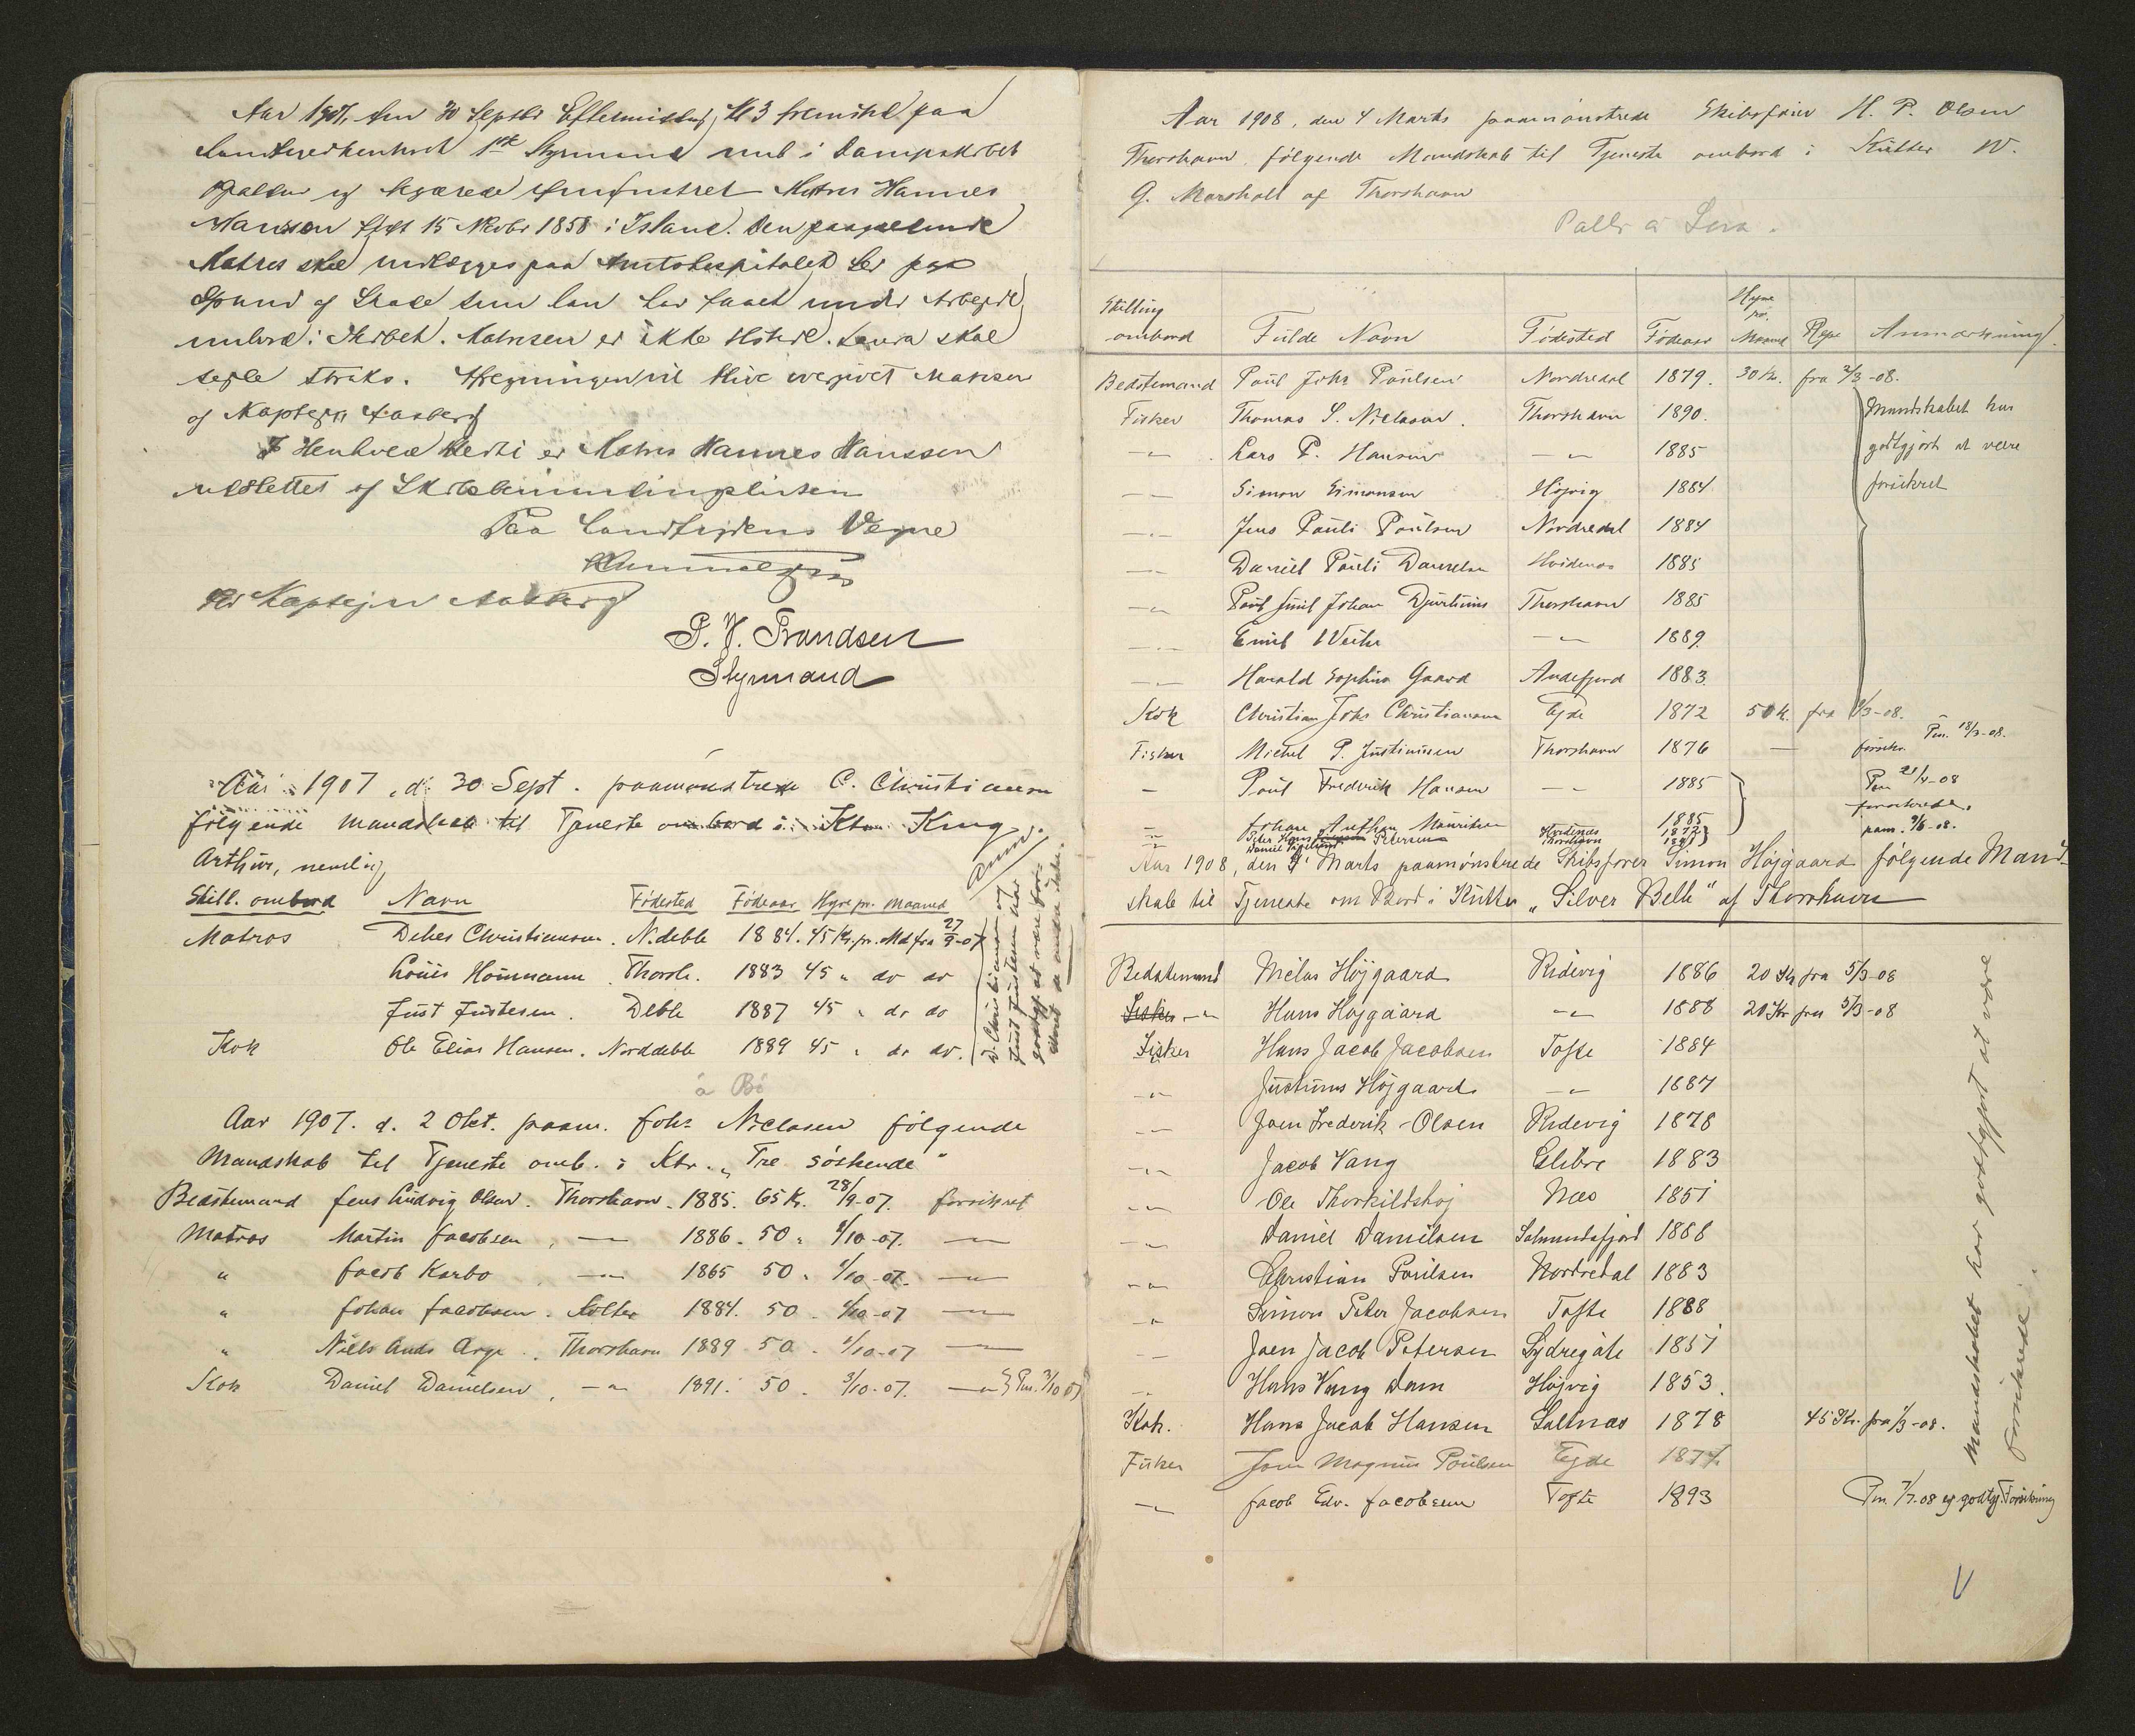 Aar 1907, den 30 Septbr Eftermiddag Kl 3 fremstod paa
Landfogedkontoret 1ste Styrmand omb i Dampskibet
og begærede afmønstret Matros Hannes
Hansson født 15 Novbr 1858 i Island. Den paagældende
Matros skal indlægges paa Amtshospitalet her paa
Grund af Skade som han har faaet under Arbejde
ombord i Skibet. skal
sejle straks. Hregningen vil blive
af Kaptejn Aasberg
I Henhold hertil er Matros Hannes Hanssen
udslettet af
Paa Landfogdens Vegne
for Kaptejn Aasberg
P. V. Frandsen
Styrmand
Aar 1907, d. 30 Sept. paamønstrede C. Christiansen
følgende Mandskab til Tjeneste ombord i Ktr. King
Arthur, nemlig
Still. ombord Navn Fødested Fødeaar Hyre pr. Maaned Anm.
Matros Christiansen. N.deble 1884. 45 Kr. pr. Md fra 27/9-07
Louis Thorsh. 1883 45 " do do
Just Justesen. Deble 1887 45 " do do
Kok Ole Elias Hansen. Norddeble 1889 45 " do do.
D. Christiansen og
Just Justesen har
godtgj. at være for-
sikret
á Bö
Aar 1907. d. 2 Okt. paam. Johs Niclasen følgende
Mandskab til Tjeneste omb. i Ktr. "Tre søskende"
Bedstemand Jens Ludvig Olsen. Thorshavn. 1885. 65 Kr. 28/9-07. forsikret
Matros Martin Jacobsen, — 1886. 50 " 1/10-07. —
" Jacob Karbo, — 1865 50 " 1/10-07. —
" Johan Jacobsen. Kolter 1884. 50 " 1/10-07 —
" Niels Andr Arge. Thorshavn 1889 50 " 1/10-07 —
Kok Daniel Danielsen, — 1891. 50 " 3/10-07. — Pm. 3/10 07
Aar 1908, den 4 Marts paamønstrede Skibsfører H. P. Olsen
Thorshavn følgende Mandskab til Tjeneste ombord i Kutter W.
G. Marshall af Thorshavn
Stilling ombord Fulde Navn Fødested Fødeaar Hyre pr. Maaned Hyre Anmærkning.
Bedstemand Poul Johs Poulsen Nordredal 1879. 30 Kr. fra 2/3-08.
Fisker Thomas S. Niclasen. Thorshavn 1890. Mandskabet har
—"— Lars P. Hansen —"— 1885 godtgjort at være
—"— Simon Simonsen Højvig 1884 forsikret
—"— Jens Pauli Poulsen Nordredal 1884
—"— Daniel Pauli Danielsen Hvidenæs 1885
—"— Poul Emil Johan Djurhuus Thorshavn 1885
—"— Emil Weihe —"— 1889.
—"— Harald Sophus Gaard Andefjord 1883.
Kok Christian Johs Christiansen Ejde 1872 50 K. fra 1/3-08.
Fisker Michel P. Justinussen Thorshavn 1876 — forsikr. Pm. 18/3-08.
— Poul Frederik Hansen —"— 1885 Pm 21/4-08
—"— Johan Anthon Mauritsen 1885 forsikrede.
—"— Peter Hans Petersen Hvidenæs 1872 paam. 9/6-08.
Aar 1908, den 4' Marts paamønstrede Skibsfører Simon Højgaard følgende Mand-
skab til Tjeneste om Bord i Kutter "Silver Bell" af Thorshavn
Bedstemand Niclas Højgaard Ridevig 1886 20 Kr fra 5/3-08
Fisker —"— Hans Højgaard —"— 1888 20 Kr fra 5/3-08
Fisker Hans Jacob Jacobsen Tofte 1884
—"— Justinus Højgaard —"— 1887
—"— Joen Frederik Olsen Ridevig 1878
—"— Jacob Vang Glibre 1883
—"— Ole Thorkildshøj Næs 1851
—"— Daniel Danielsen Salmundefjord 1868
—"— Christian Poulsen Nordredal 1883
—"— Simon Peter Jacobsen Tofte 1888
—"— Joen Jacob Petersen Sydregøte 1851
—"— Hans Vang Dam Højvig 1853.
Kok. Hans Jacob Hansen Saltnæs 1878 45 Kr. fra 1/3-08.
Fisker Joen Magnus Poulsen Ejde 1877
—"— Jacob Edv. Jacobsen Tofte 1893 Pm. 7/7-08 og godtgj. Forsikring
Mandskabet har godtgjort at være
forsikrede.